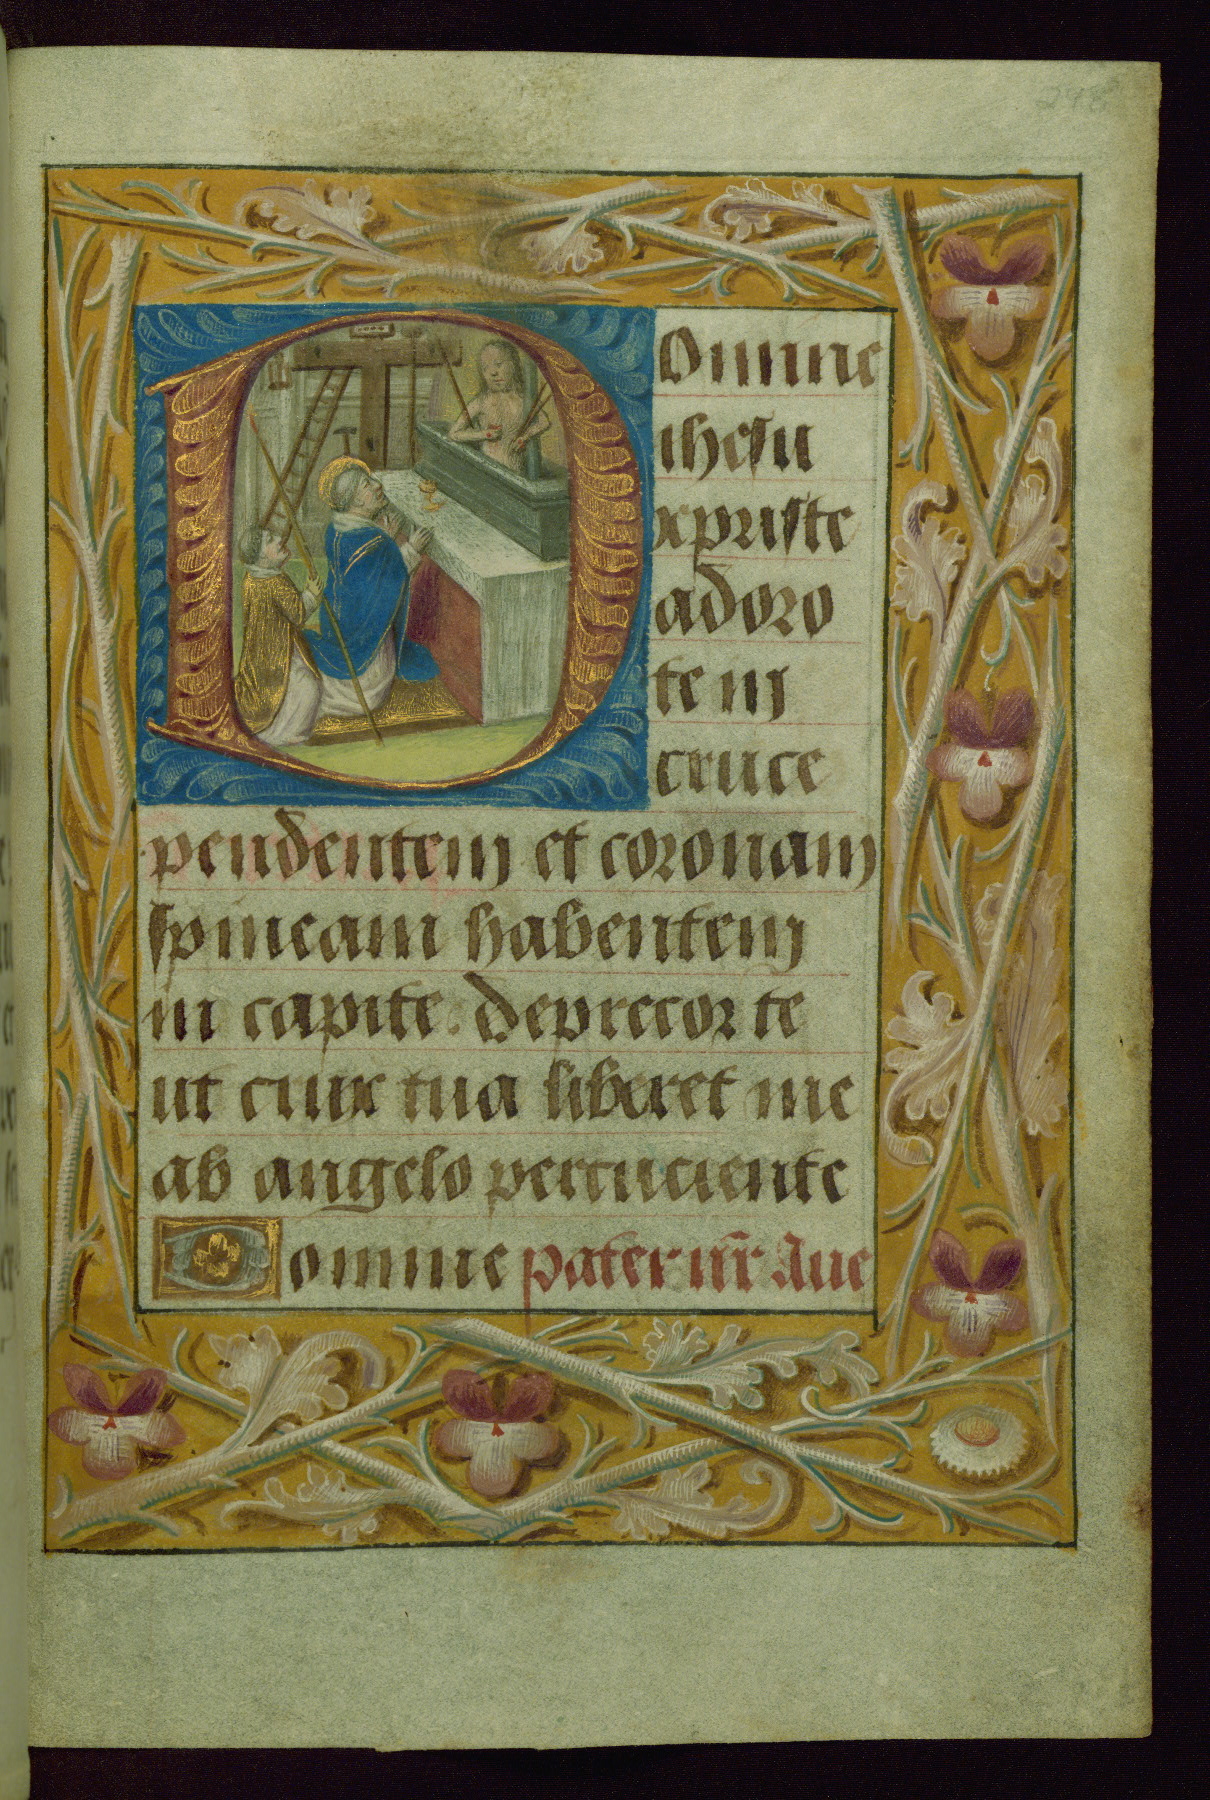 Domine
ihesu
xpriste
adoro
te in
cruce
pendentem et coronam
spineam habentem
in capite. deprecor te
ut crux tua liberet me
ab angelo percuciente
Domine pater nr̄ Aue
248